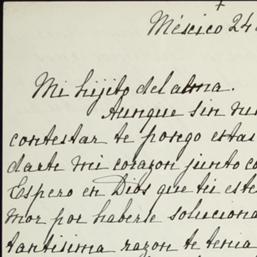 México 24
Mi hijito del alma.
Aunque sin
contestar te pongo estas
darte mi corazon junto co
Espero en Dios que tú este
mor por haberse soluciona
tantisima razon te tenia